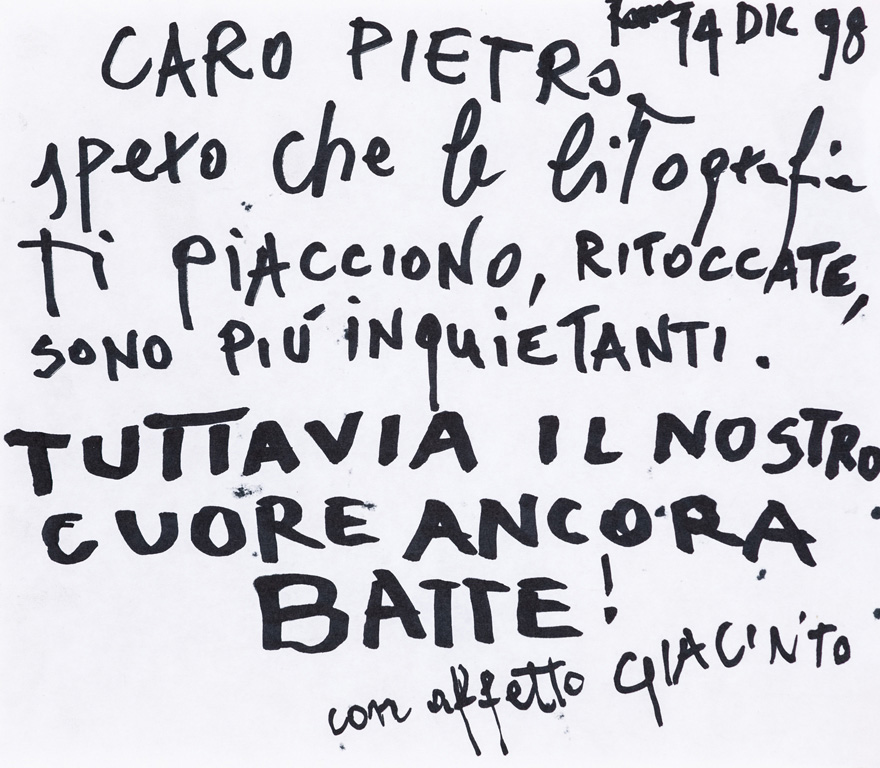 Roma 14 DIC 98
CARO PIETRO,
spero che le liTografie
Ti piACCIONO, RITOCCATE,
SONO PIÚ iNquiETANTI.
TUTTAVIA IL NOSTRO
CUORE ANCORA
BATTE!
con affetto GIACINTO